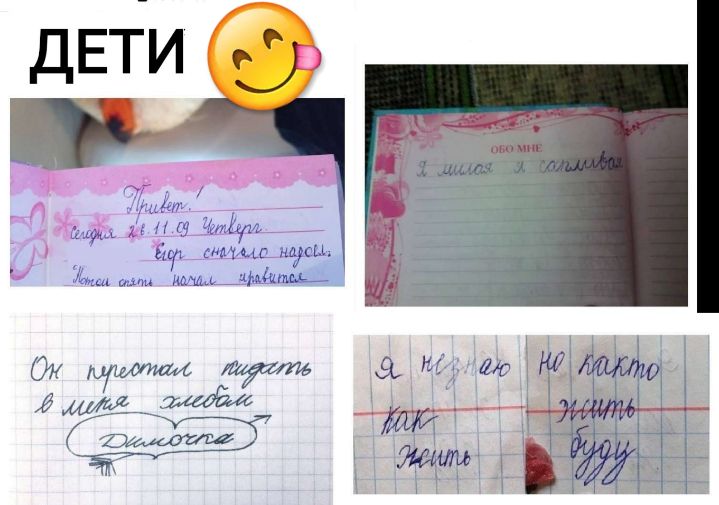 ДЕТИ
Привет!
Сегодня 26.11.09 Четверг.
Егор сначало надоел.
Потом опять начал нравится
ОБО МНЕ
Я милая я сапливая
Он перестал кидать
в меня хлебом
Димочка
я незнаю
как
жить
но както
жить
буду